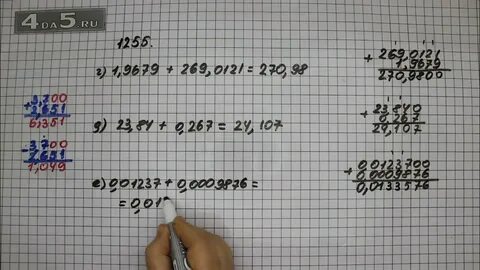 4DA5.RU
1255.
г) 1,9679 + 269,0121 = 270,98
д) 23,84 + 0,267 = 24,107
е) 0,01237 + 0,0009876 =
= 0,01
+ 3,700
2,651
6,351
- 3,700
2,651
1,049
+ 269,0121
1,9679
270,9800
+ 23,840
0,267
24,107
+ 0,0123700
0,0009876
0,0133576